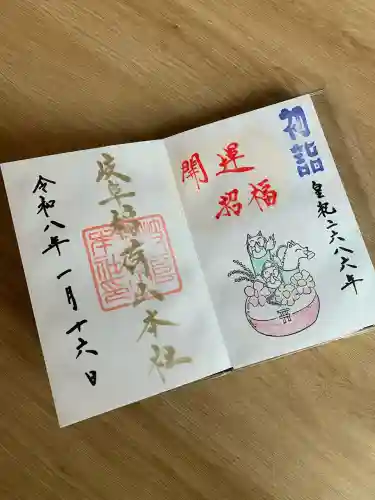 初詣
皇紀二六八六年
開運
招福
岐阜稲荷山本社
令和八年一月十六日